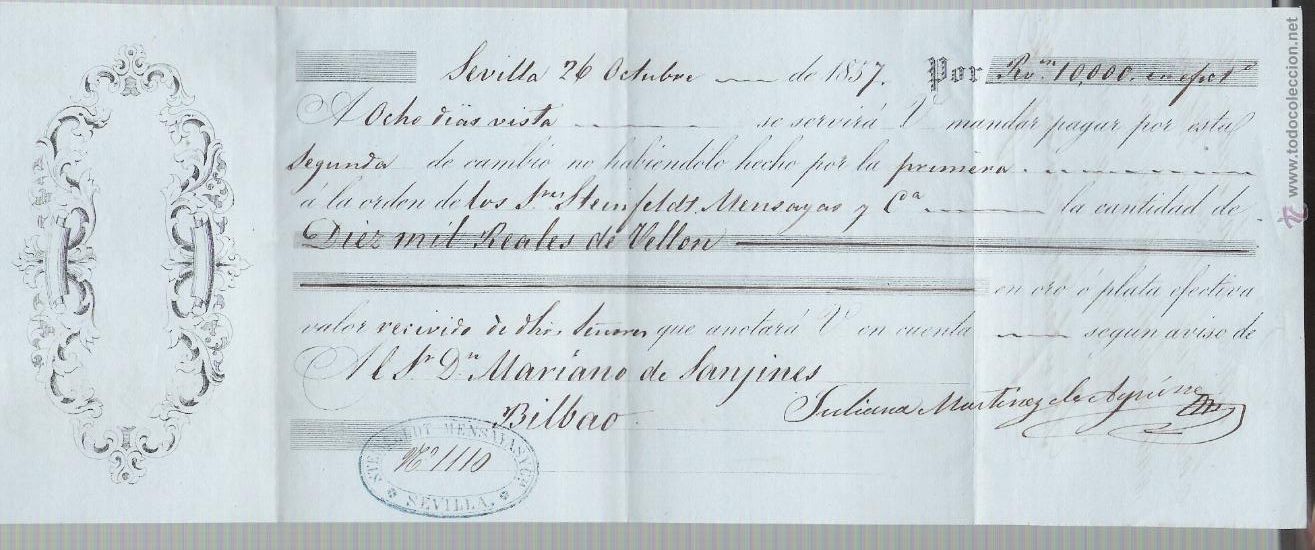 Sevilla 26 Octubre de 1857. Por Rvn. 10,000. en efect.o
A Ocho dias vista se servirá V mandar pagar por esta
segunda de cambio no habiendolo hecho por la primera
á la orden de los Sres Steinfeldt, Mensayas y Ca la cantidad de
Diez mil Reales de Vellon
en oro ó plata efectiva
valor recivido de dhos. Señores que anotará V en cuenta segun aviso de
Al Sr Dn Mariano de Sanjines
Juliana Martinez de
Bilbao
MENSAYAS Y CA
No 1110
SEVILLA.
www.todocoleccion.net
tc